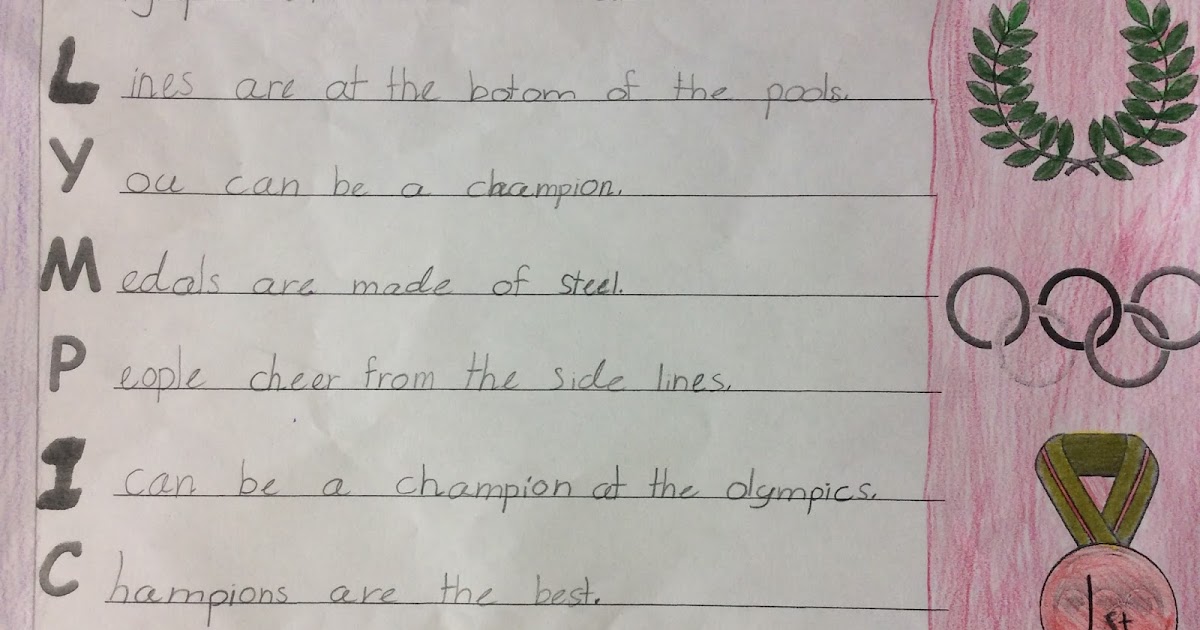 Lines are at the botom of the pools.
You can be a champion.
Medals are made of steel.
People cheer from the side lines.
I can be a champion at the olympics.
Champions are the best.
1st